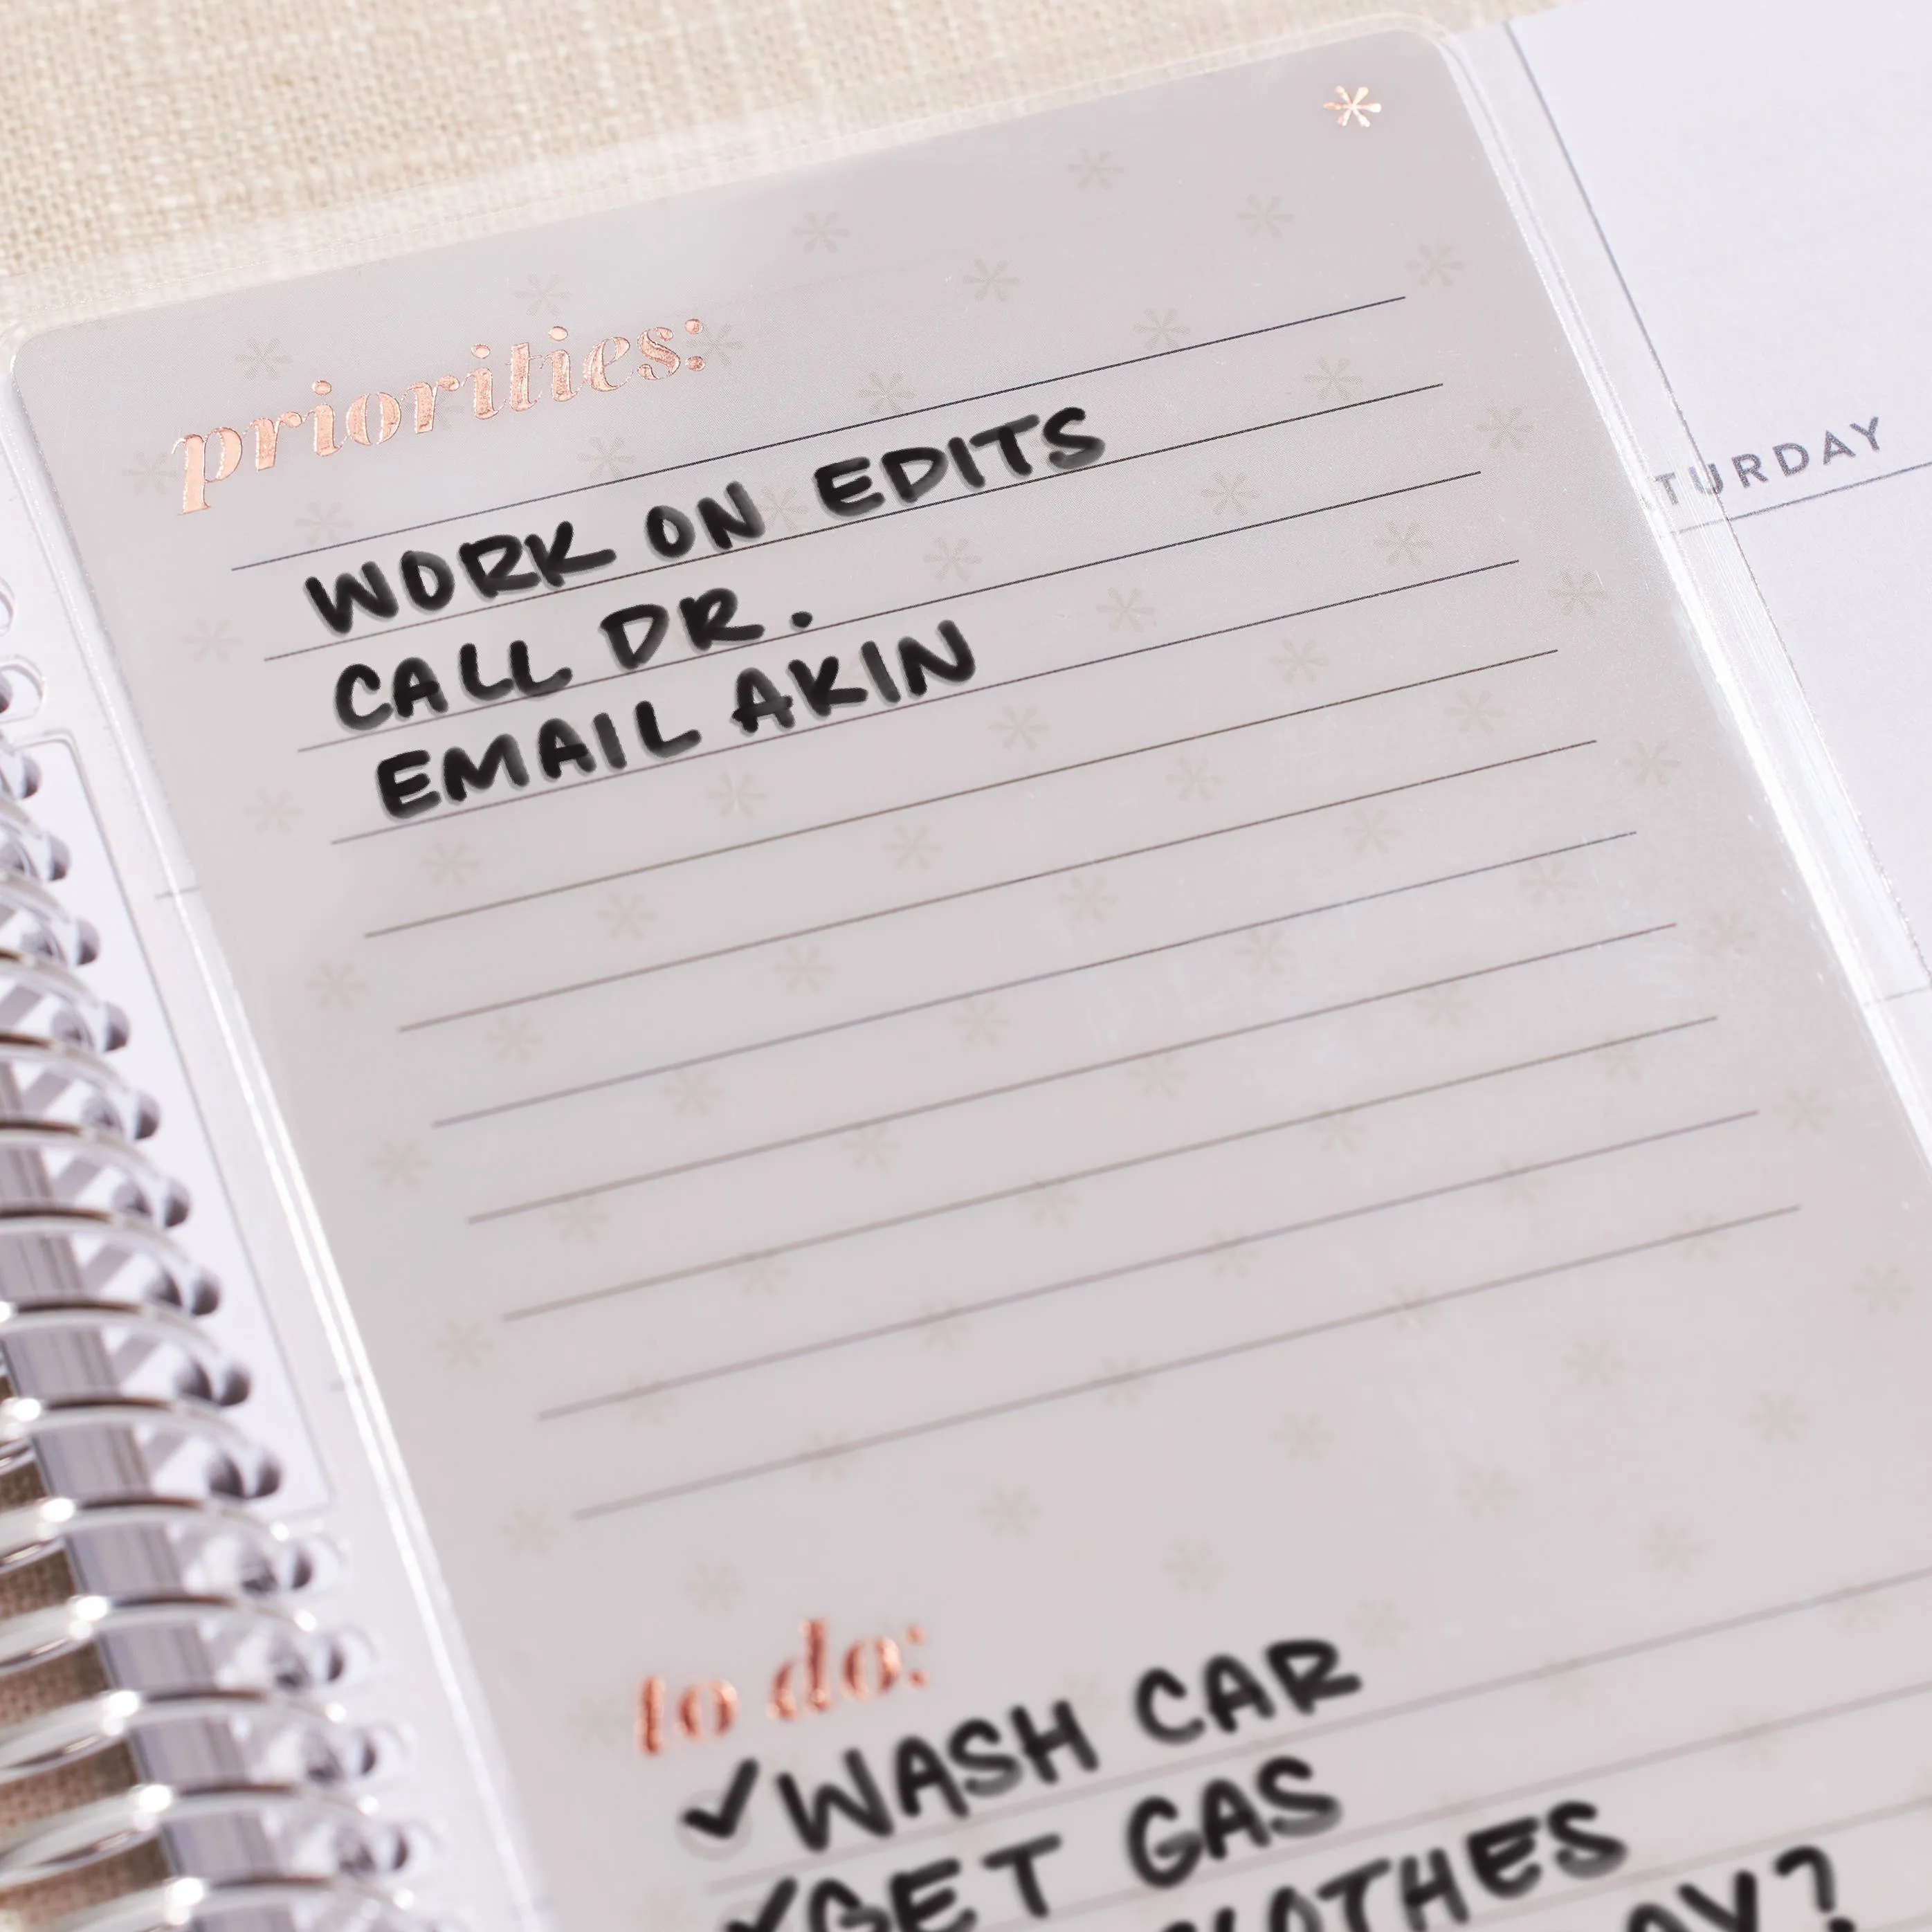 priorities:
TURDAY
WORK ON EDITS
CALL DR.
EMAIL AKIN
to do:
✓WASH CAR
✓GET GAS